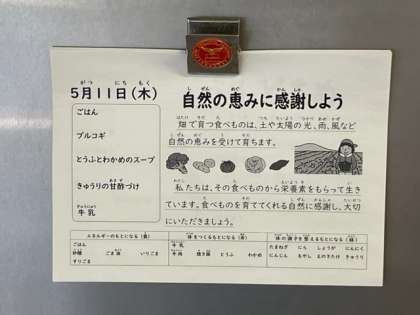 5月11日(木)
ごはん
プルコギ
とうふとわかめのスープ
きゅうりの甘酢づけ
牛乳
自然の恵みに感謝しよう
畑で育つ食べものは、土や太陽の光、雨、風など
自然の恵みを受けて育ちます。
私たちは、その食べものから栄養素をもらって生き
ています。食べものを育ててくれる自然に感謝し、大切
にいただきましょう。
エネルギーのもとになる(黄)
ごはん
砂糖 ごま油 いりごま
すりごま
体をつくるもとになる(赤)
牛乳
牛肉 焼き豚 とうふ わかめ
体の調子を整えるもとになる(緑)
たまねぎ にら しょうが にんにく
にんじん もやし えのきたけ きゅうり